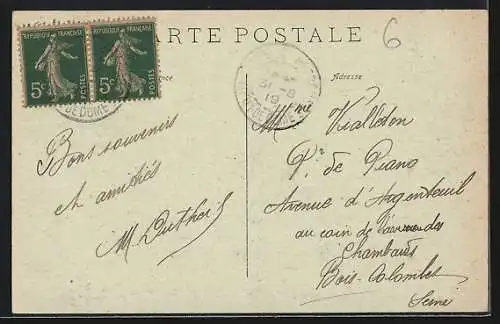 RÉPUBLIQUE FRANÇAISE
5c POSTES
RÉPUBLIQUE FRANÇAISE
5c POSTES
CARTE POSTALE
6
Adresse
31 - 8
19
PUY-DE-DOME
Bons souvenirs
et amitiés
M Dutheil
Mme Vialleton
P. de Piano
Avenue d'Argenteuil
au coin de l'avenue des
Chambards
Bois-Colombes
Seine